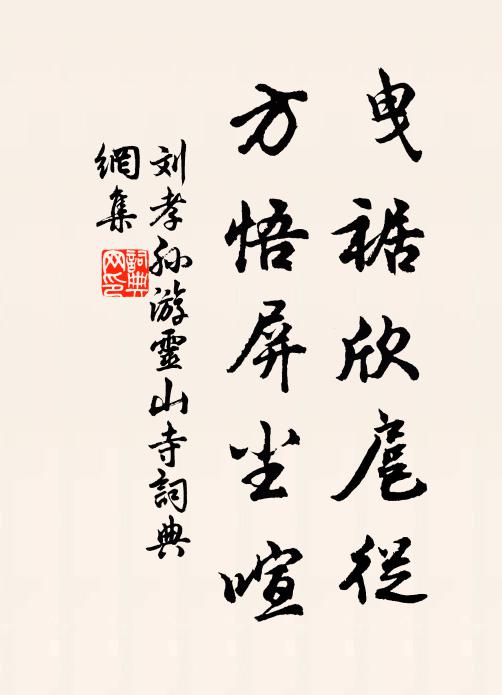 曳裾欣扈從
方悟屏尘喧
刘孝孙游靈山寺詞典
網集
詞典
网印